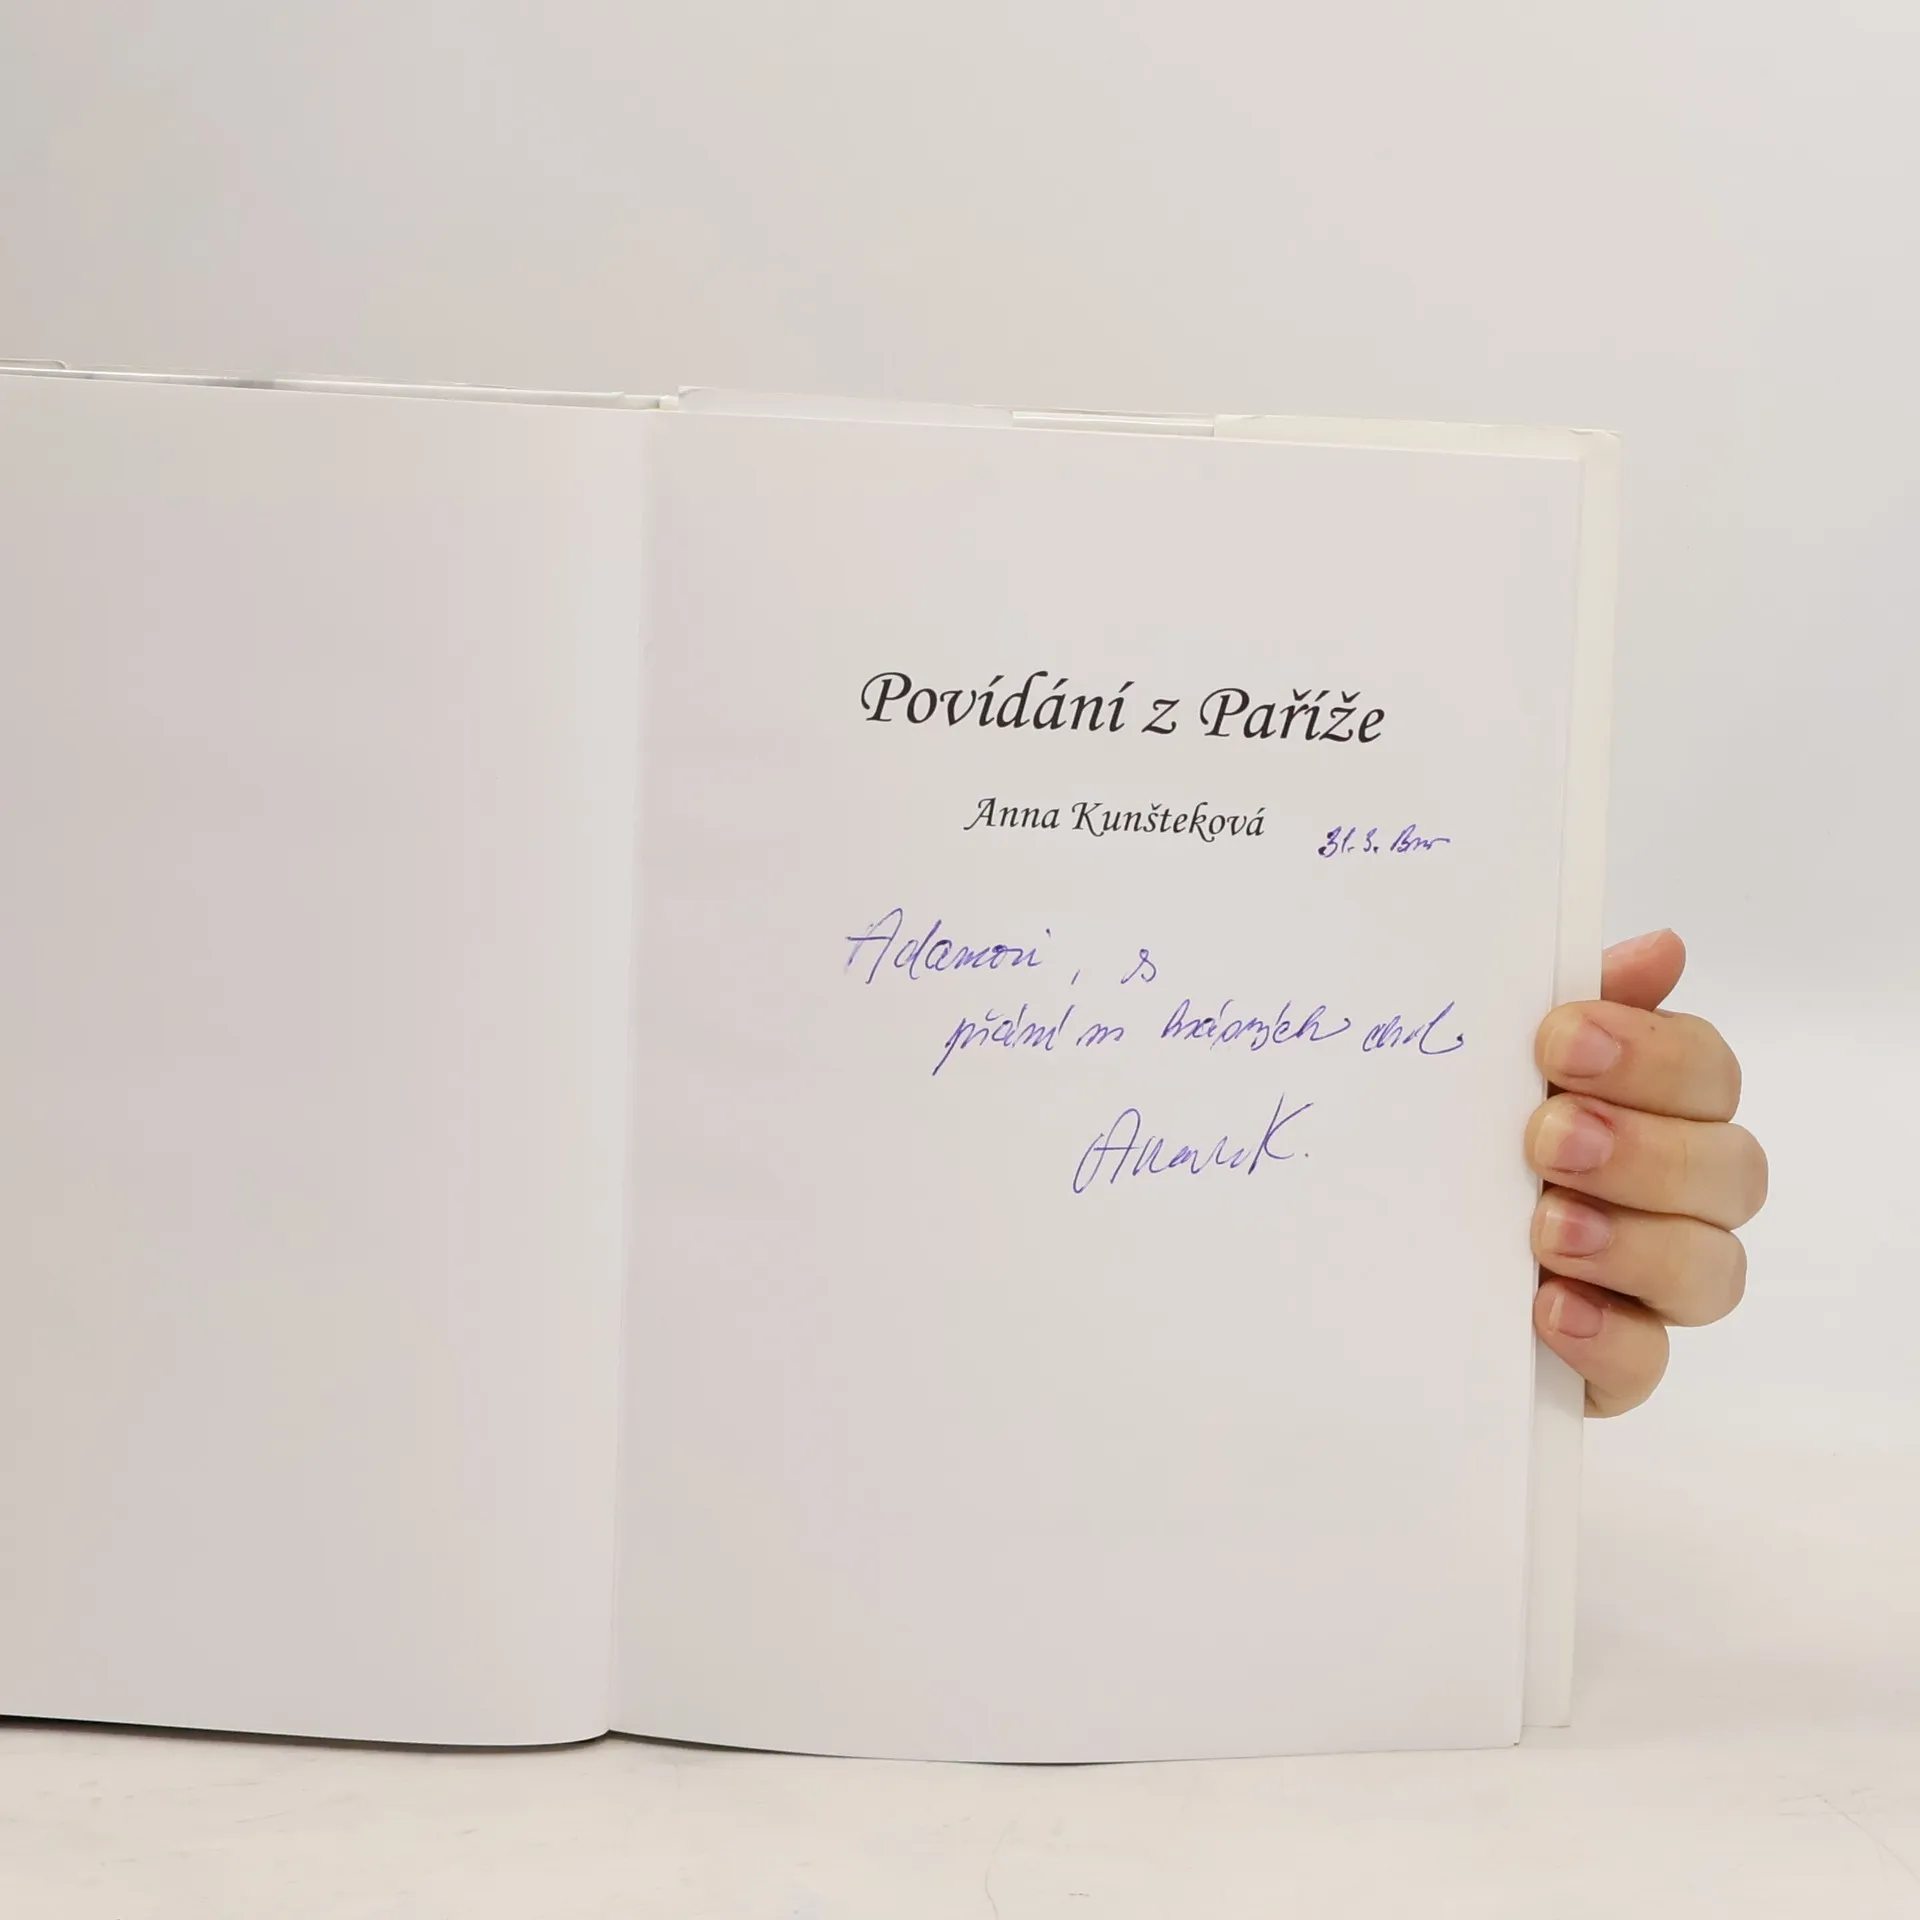 Povídání z Paříže
Anna Kunšteková
31. 3. Brno
Adamovi, s
přáním krásných chvil
Anna K.